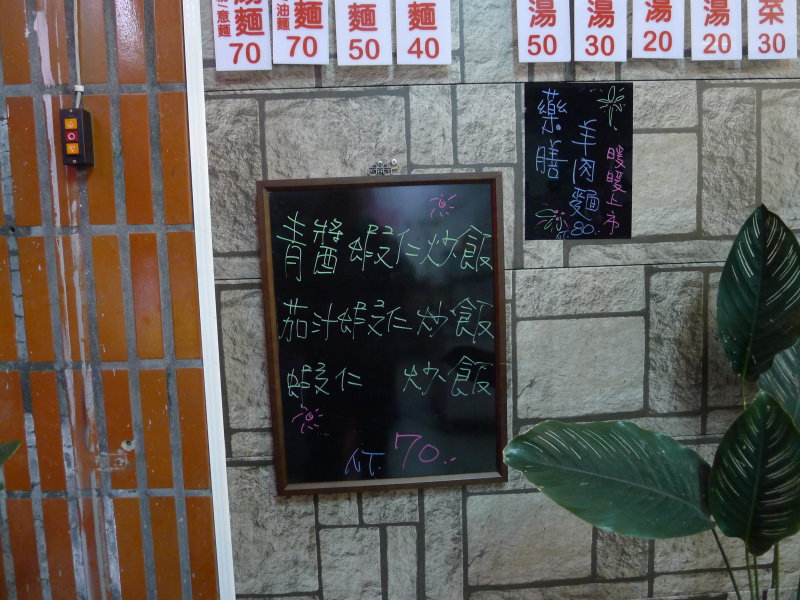 湯麵
70
麵
70
麵
50
麵
40
湯
50
湯
30
湯
20
湯
20
菜
30
藥膳
羊肉麵80.
暖暖上市
青醬蝦仁炒飯
茄汁蝦仁炒飯
蝦仁 炒飯
NT.70..